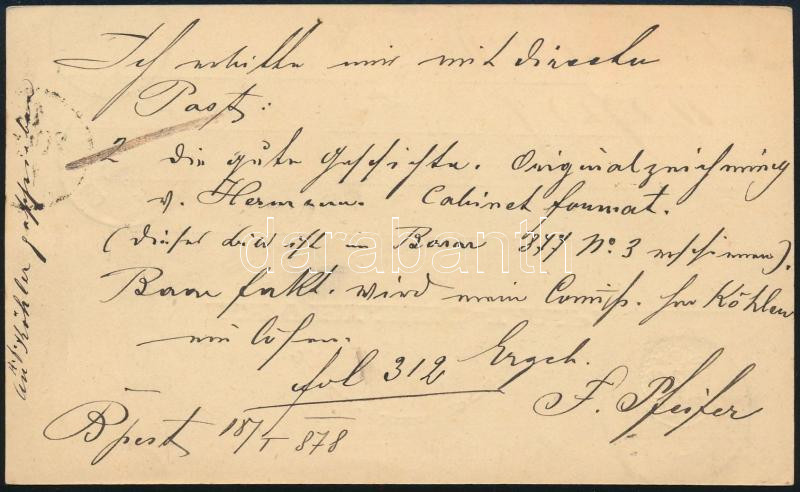 Ich erbitte mir mit directer
Post:
2 die gute Geschichte. Originalzeichnung
v. Hermann. Cabinet format.
(dieses Bild ist im Bazar No. 3 erschienen).
Baar fakt. wird mein Comiss. Herr Köhler
einlösen.
fol 312 Ergeb.
F. Pfeifer
Bpest 18/I 878
an Köhler geschrieben
darabanth